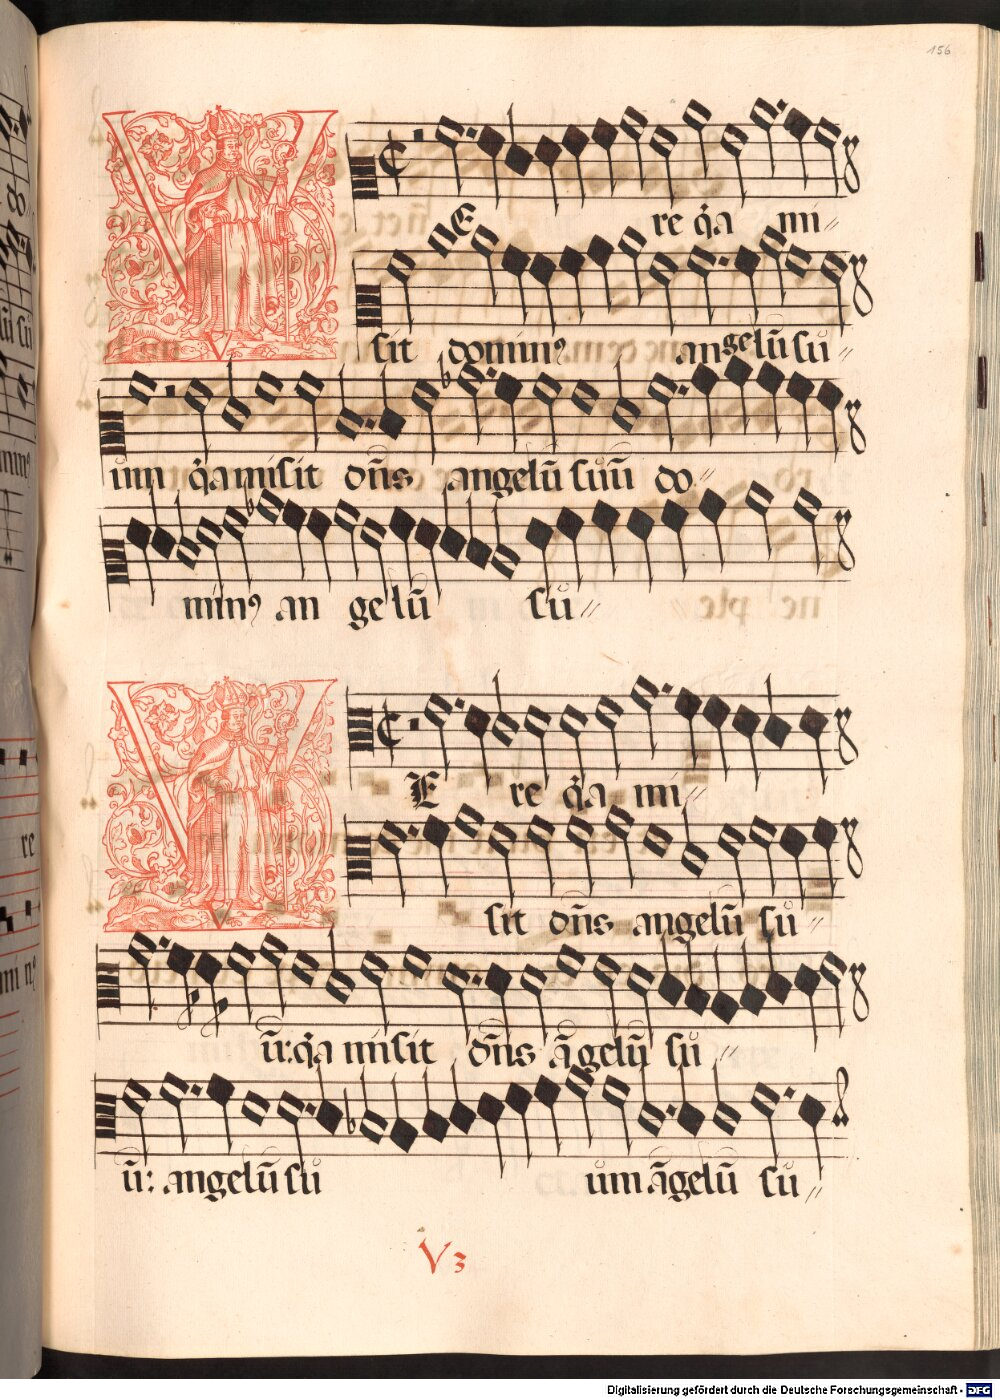 156
VE re q̃a mi〃
sit dominꝰ angelũ su〃
um q̃a misit dñs angelũ suũ do〃
minꝰ an gelũ su〃
VE re q̃a mi〃
sit dñs angelũ su〃
ũ: q̃a misit dñs ãgelũ su〃
ũ: angelũ su um ãgelũ su〃
V 3
Digitalisierung gefördert durch die Deutsche Forschungsgemeinschaft - DFG